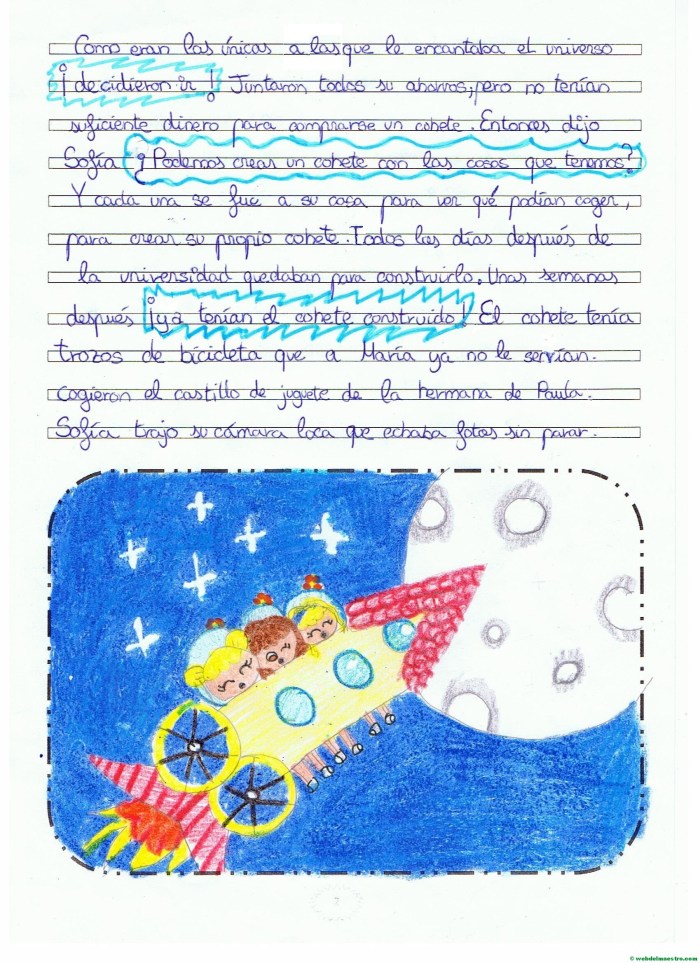 Como eran las únicas a las que le encantaba el universo
¡decidieron ir! Juntaron todos su ahorros, pero no tenían
suficiente dinero para comprarse un cohete. Entonces dijo
Sofía ¿Podemos crear un cohete con las cosas que tenemos?
Y cada una se fue a su casa para ver qué podían coger,
para crear su propio cohete. Todos los días después de
la universidad quedaban para construirlo. Unas semanas
después ¡ya tenían el cohete construido! El cohete tenía
trozos de bicicleta que a María ya no le servían.
Cogieron el castillo de juguete de la hermana de Paula.
Sofía trajo su cámara loca que echaba fotos sin parar.
7
© webdelmaestro.com